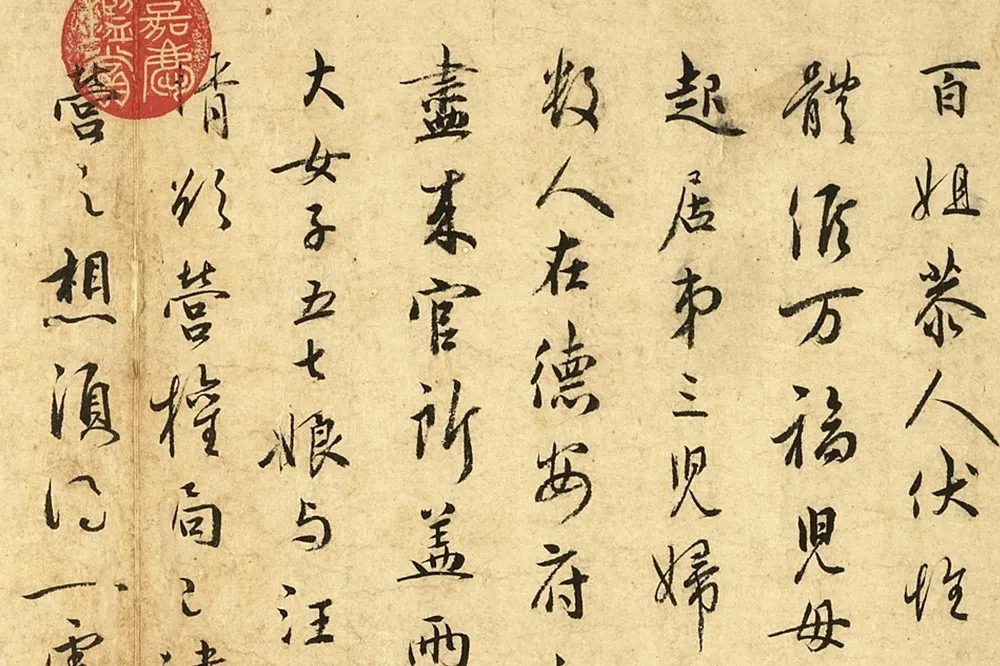 百姐恭人伏惟
體候万福兒母
起居弟三兒婦
数人在德安府
盡来官所盖兩
大女子五七娘与汪
情欲營権局已
營之想須得一處
嘉慶鑑賞